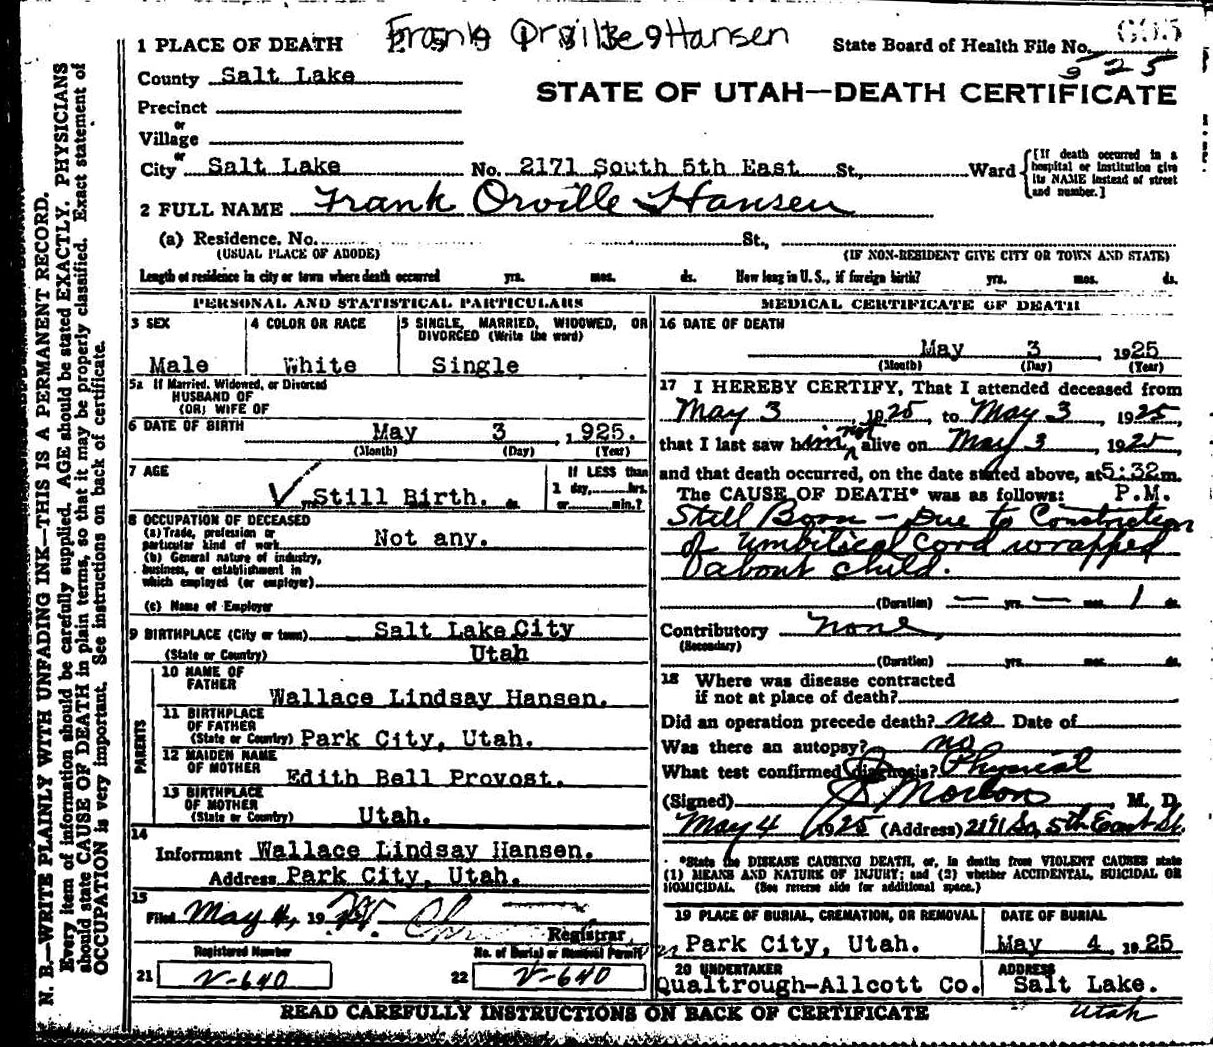 Frank Orville Hansen
1 PLACE OF DEATH
State Board of Health File No.
525
County Salt Lake
STATE OF UTAH—DEATH CERTIFICATE
Precinct
or
Village
or
City Salt Lake No. 2171 South 5th East St., Ward
[If death occurred in a hospital or institution give its NAME instead of street and number.]
2 FULL NAME Frank Orville Hansen
(a) Residence. No. St.,
(USUAL PLACE OF ABODE) (IF NON-RESIDENT GIVE CITY OR TOWN AND STATE)
Length of residence in city or town where death occurred yrs. mos. ds. How long in U. S., if foreign birth? yrs. mos. ds.
PERSONAL AND STATISTICAL PARTICULARS
3 SEX
Male
4 COLOR OR RACE
White
5 SINGLE, MARRIED, WIDOWED, OR
DIVORCED (Write the word)
Single
5a If Married, Widowed, or Divorced
HUSBAND OF
(OR) WIFE OF
6 DATE OF BIRTH May 3, 1925.
(Month) (Day) (Year)
7 AGE
Still Birth.
yrs. ds.
If LESS than
1 day, hrs.
or min.?
8 OCCUPATION OF DECEASED
(a) Trade, profession or
particular kind of work Not any.
(b) General nature of industry,
business, or establishment in
which employed (or employer)
(c) Name of Employer
9 BIRTHPLACE (City or town) Salt Lake City
(State or Country) Utah
PARENTS
10 NAME OF
FATHER
Wallace Lindsay Hansen.
11 BIRTHPLACE
OF FATHER
(State or Country) Park City, Utah.
12 MAIDEN NAME
OF MOTHER
Edith Bell Provost.
13 BIRTHPLACE
OF MOTHER
(State or Country) Utah.
14
Informant Wallace Lindsay Hansen.
Address Park City, Utah.
15
Filed May 4, 19
Registrar
Registered Number
No. of Burial or Removal Permit
21 V-640
22 V-640
MEDICAL CERTIFICATE OF DEATH
16 DATE OF DEATH
May 3, 1925
(Month) (Day) (Year)
17 I HEREBY CERTIFY, That I attended deceased from
May 3, 1925, to May 3, 1925,
that I last saw him not alive on May 3, 1925
and that death occurred, on the date stated above, at 5:32 m.
The CAUSE OF DEATH* was as follows: P.M.
Still Born - Due to Constriction
of umbilical cord wrapped
about child.
(Duration) — yrs. — mos. 1 ds.
Contributory none,
(Secondary)
(Duration) yrs. mos. ds.
18 Where was disease contracted
if not at place of death?
Did an operation precede death? no Date of
Was there an autopsy? no
What test confirmed diagnosis? Physical
(Signed) Morton, M. D.
May 4 1925 (Address) 2191 So. 5th East St.
*State the DISEASE CAUSING DEATH, or, in deaths from VIOLENT CAUSES state
(1) MEANS AND NATURE OF INJURY; and (2) whether ACCIDENTAL, SUICIDAL OR
HOMICIDAL. (See reverse side for additional space.)
19 PLACE OF BURIAL, CREMATION, OR REMOVAL
Park City, Utah.
DATE OF BURIAL
May 4, 1925
20 UNDERTAKER
Qualtrough-Allcott Co.
ADDRESS
Salt Lake.
Utah
READ CAREFULLY INSTRUCTIONS ON BACK OF CERTIFICATE
N. B.—WRITE PLAINLY WITH UNFADING INK—THIS IS A PERMANENT RECORD.
Every item of information should be carefully supplied. AGE should be stated EXACTLY. PHYSICIANS
should state CAUSE OF DEATH in plain terms, so that it may be properly classified. Exact statement of
OCCUPATION is very important. See instructions on back of certificate.